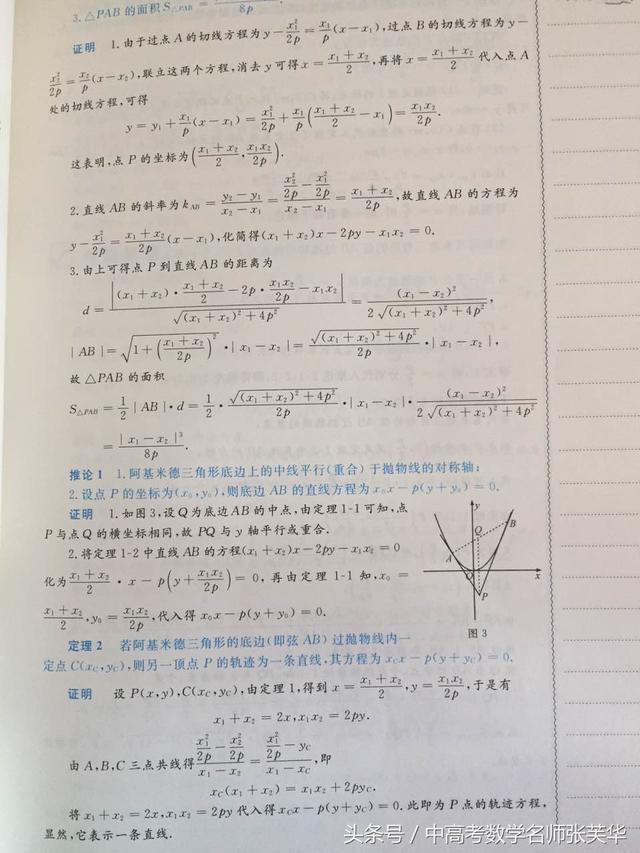 3. △PAB 的面积 S△PAB = ———— 8p .
证明 1. 由于过点 A 的切线方程为 y－x₁²/2p＝x₁/p(x－x₁),过点 B 的切线方程为 y－
x₂²/2p＝x₂/p(x－x₂),联立这两个方程,消去 y 可得 x＝(x₁＋x₂)/2,再将 x＝(x₁＋x₂)/2 代入点 A
处的切线方程,可得
y＝y₁＋x₁/p(x－x₁)＝x₁²/2p＋x₁/p((x₁＋x₂)/2－x₁)＝x₁x₂/2p.
这表明,点 P 的坐标为((x₁＋x₂)/2, x₁x₂/2p).
2. 直线 AB 的斜率为 k_AB＝(y₂－y₁)/(x₂－x₁)＝(x₂²/2p－x₁²/2p)/(x₂－x₁)＝(x₁＋x₂)/2p,故直线 AB 的方程为
y－x₁²/2p＝(x₁＋x₂)/2p(x－x₁),化简得(x₁＋x₂)x－2py－x₁x₂＝0.
3. 由上可得点 P 到直线 AB 的距离为
d＝|(x₁＋x₂)·(x₁＋x₂)/2－2p·x₁x₂/2p－x₁x₂|/√((x₁＋x₂)²＋4p²)＝(x₁－x₂)²/(2√((x₁＋x₂)²＋4p²)),
|AB|＝√(1＋((x₁＋x₂)/2p)²)·|x₁－x₂|＝√((x₁＋x₂)²＋4p²)/2p·|x₁－x₂|,
故△PAB 的面积
S△PAB＝1/2|AB|·d＝1/2·√((x₁＋x₂)²＋4p²)/2p·|x₁－x₂|·(x₁－x₂)²/(2√((x₁＋x₂)²＋4p²))
＝|x₁－x₂|³/8p.
推论 1 1. 阿基米德三角形底边上的中线平行(重合)于抛物线的对称轴;
2. 设点 P 的坐标为(x₀,y₀),则底边 AB 的直线方程为 x₀x－p(y＋y₀)＝0.
证明 1. 如图 3,设 Q 为底边 AB 的中点,由定理 1-1 可知,点
P 与点 Q 的横坐标相同,故 PQ 与 y 轴平行或重合.
2. 将定理 1-2 中直线 AB 的方程(x₁＋x₂)x－2py－x₁x₂＝0
化为(x₁＋x₂)/2·x－p(y＋x₁x₂/2p)＝0,再由定理 1-1 知,x₀＝
(x₁＋x₂)/2,y₀＝x₁x₂/2p,代入得 x₀x－p(y＋y₀)＝0.
y
Q
B
A
O
x
P
图 3
定理 2 若阿基米德三角形的底边(即弦 AB)过抛物线内一
定点 C(x_C,y_C),则另一顶点 P 的轨迹为一条直线,其方程为 x_Cx－p(y＋y_C)＝0.
证明 设 P(x,y),C(x_C,y_C),由定理 1,得到 x＝(x₁＋x₂)/2,y＝x₁x₂/2p,于是有
x₁＋x₂＝2x,x₁x₂＝2py.
由 A,B,C 三点共线得(x₁²/2p－x₂²/2p)/(x₁－x₂)＝(x₁²/2p－y_C)/(x₁－x_C),即
x_C(x₁＋x₂)＝x₁x₂＋2py_C.
将 x₁＋x₂＝2x,x₁x₂＝2py 代入得 x_Cx－p(y＋y_C)＝0. 此即为 P 点的轨迹方程,
显然,它表示一条直线.
头条号 / 中高考数学名师张芙华